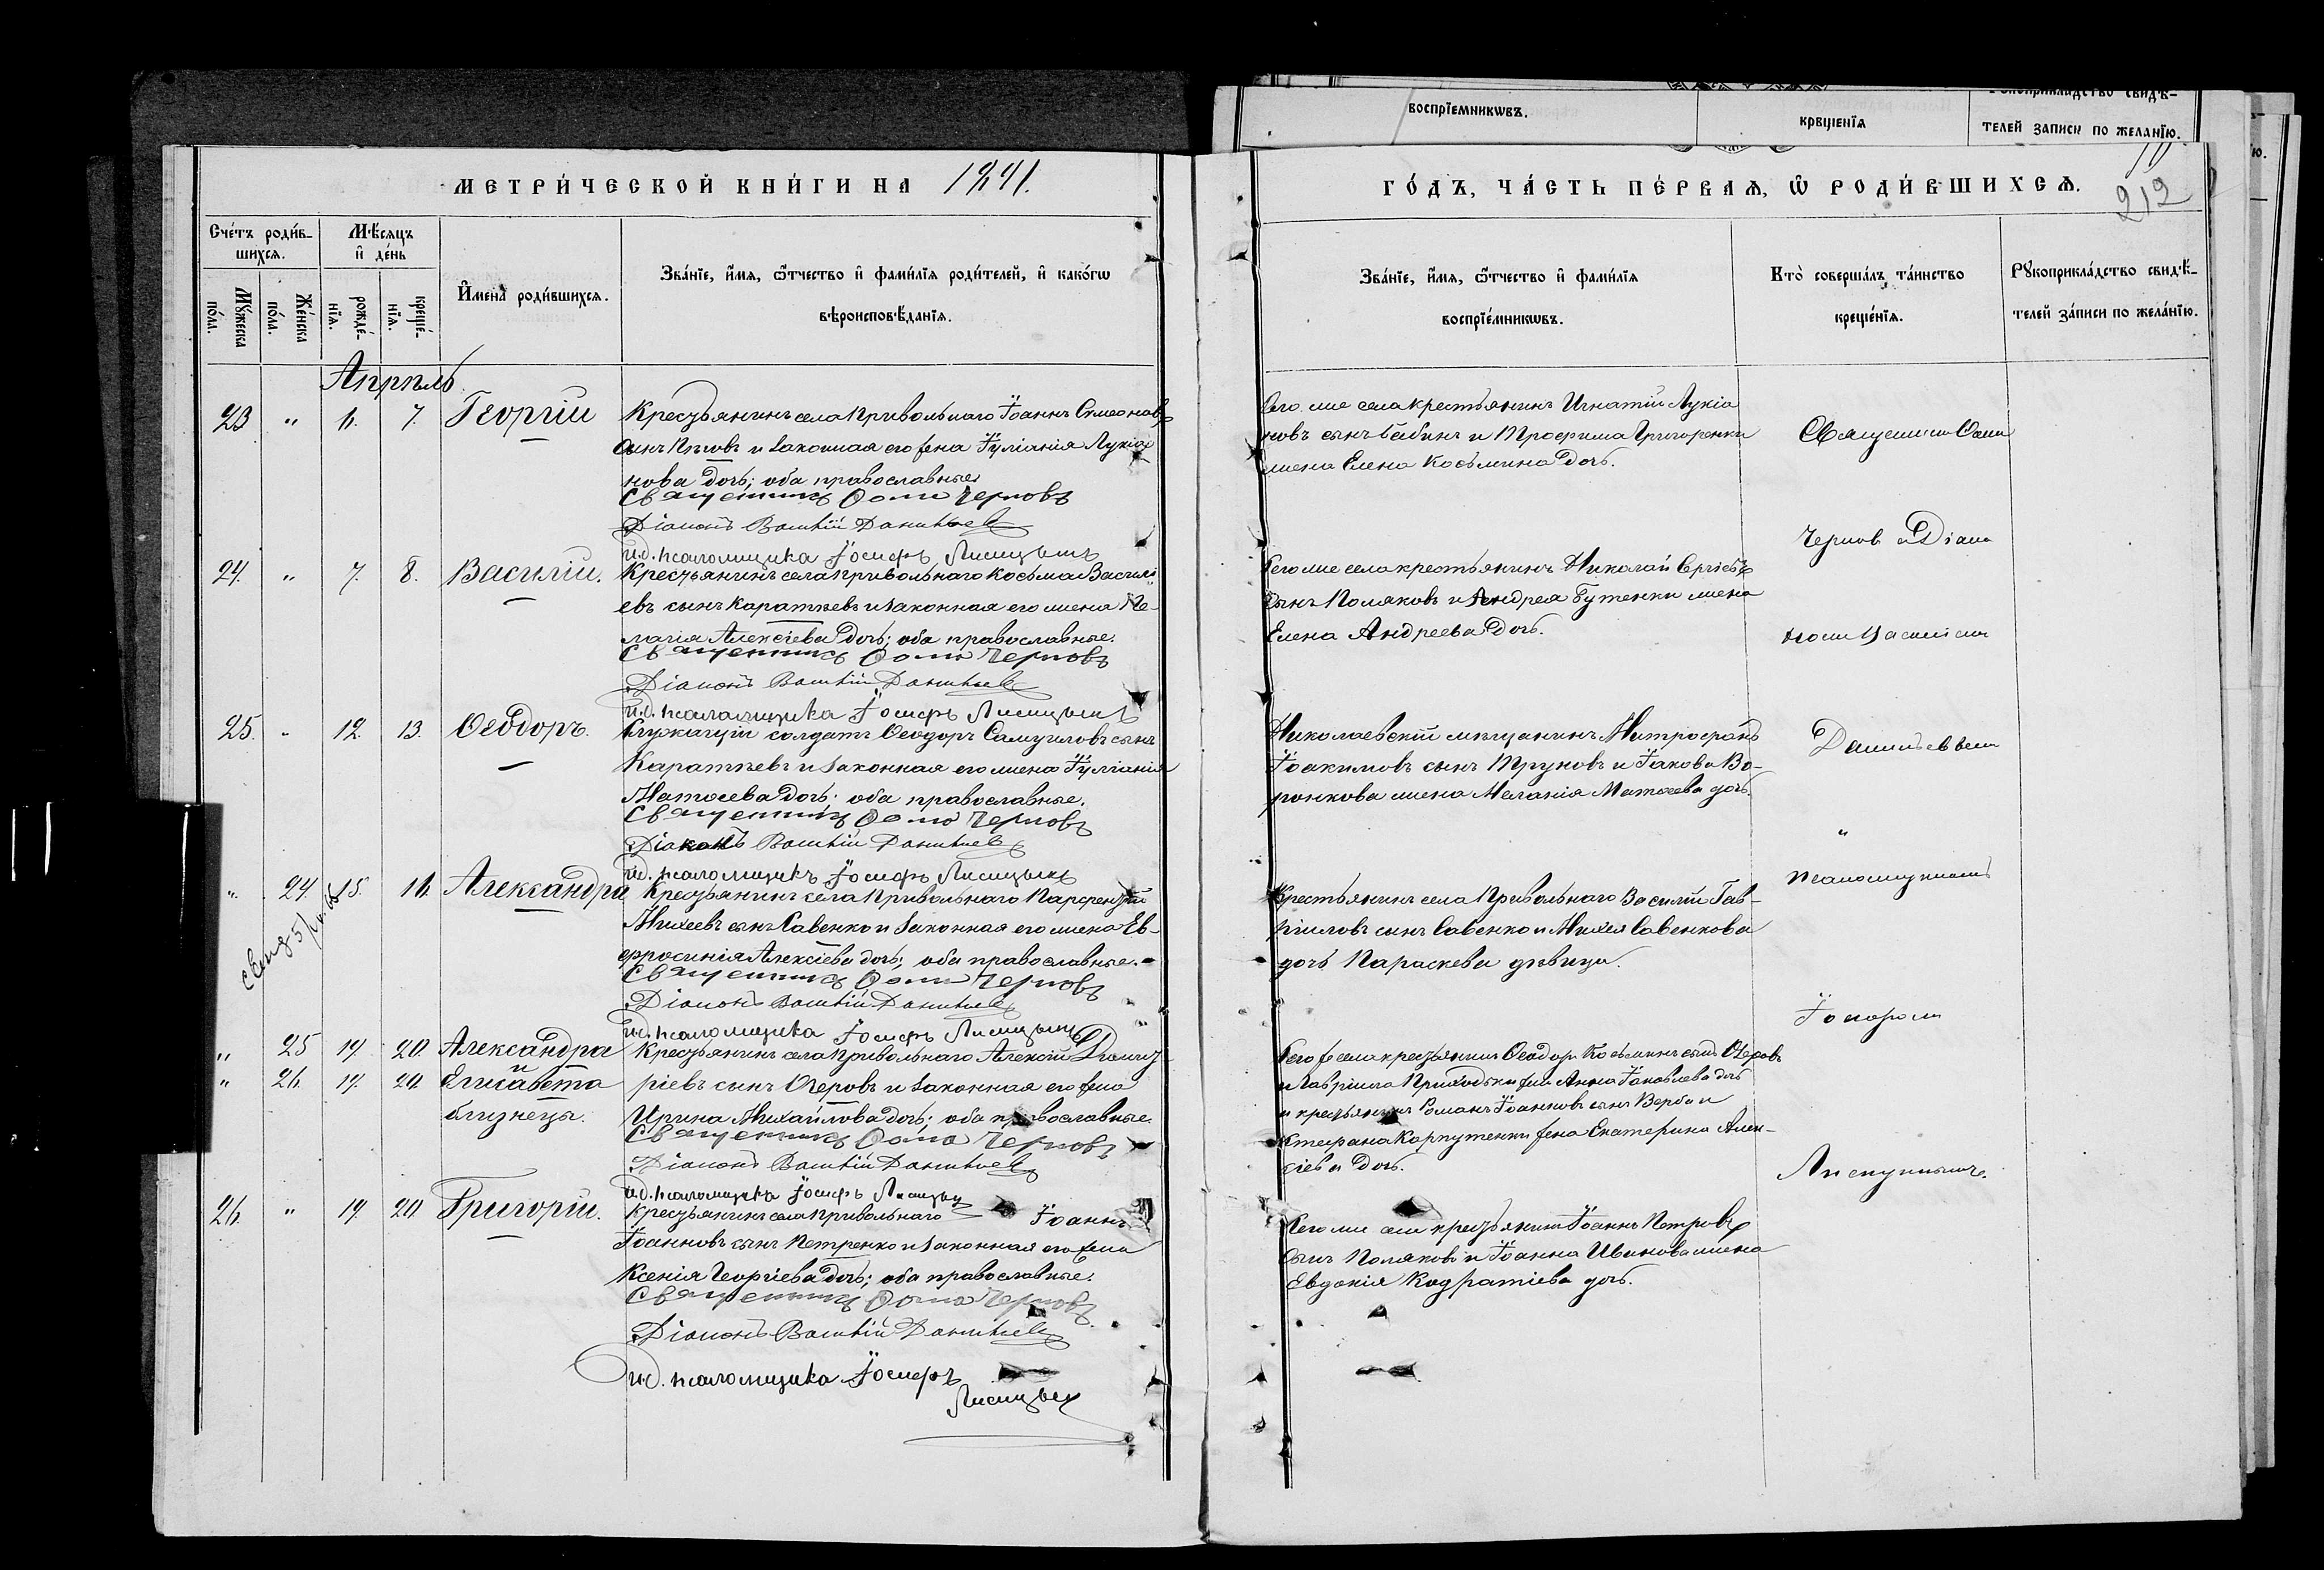 воспрїемникѡвъ.
крещенїя
телей записи по желанїю.
МЕТРИ́ЧЕСКОЙ КНИ́ГИ НА 1891.
ГО́ДЪ, ЧА́СТЬ ПЕ́РВАѦ, Ѿ РОДИ́ВШИХСѦ.
212
Сче́тъ роди́в-
шихсѧ.
Мѣ́сѧцъ
и҆ де́нь
Мꙋ́жеска
по́ла.
Же́нска
по́ла.
рожде́-
нїѧ.
креще́-
нїѧ.
И҆мена̀ роди́вшихсѧ.
Зва́нїе, и҆́мѧ, ѻ҆́тчество и҆ фами́лїѧ роди́телей, и҆ како́гѡ
вѣроисповѣ́данїѧ.
Зва́нїе, и҆́мѧ, ѻ҆́тчество и҆ фами́лїѧ
воспрїе́мникѡвъ.
Кто̀ соверша́лъ та́инство
креще́нїѧ.
Рꙋкоприкла́дство свидѣ́-
телей за́писи по жела́нїю.
Апрѣль
23 " 6. 7. Георгій
Крестьянинъ села Привольнаго Іоаннъ Симеоновъ
сынъ и законная его жена Іуліанія Лукіа
нова дочь; оба православные
Священникъ Ѳома Черновъ
Діаконъ Василій Данильевъ
и.д. псаломщика Іосифъ Лисицынъ
Того же села крестьянинъ Игнатій Лукіа
новъ сынъ Бабичъ и Трофима Григоренки
жена Елена Косьмина дочь.
Священникъ Ѳома
Черновъ Діако
24. " 7. 8. Василій.
Крестьянинъ села Привольнаго Косьма Василі
евъ сынъ Каратѣевъ и законная его жена Пе-
лагія Алексіева дочь; оба православные.
Священникъ Ѳома Черновъ
Діаконъ Василій Данильевъ
и.д. псаломщика Іосифъ Лисицынъ
Того же села крестьянинъ Николай Сергіевъ
сынъ Поляковъ и Андрея Бутенки жена
Елена Андреева дочь.
номъ Василіемъ
25. " 12. 13. Ѳеодоръ.
Служащій солдатъ Ѳеодоръ Самуиловъ сынъ
Каратѣевъ и законная его жена Іуліанія
Матѳеева дочь; оба православные.
Священникъ Ѳома Черновъ
Діаконъ Василій Данильевъ
и.д. псаломщикъ Іосифъ Лисицынъ
Николаевскій мѣщанинъ Митрофанъ
Іоакимовъ сынъ Труновъ и Іакова Во-
ронкова жена Меланія Матѳеева дочь.
Данильевымъ
"
" 24. 15. 16. Александра
Крестьянинъ села Привольнаго Парфентій
Михеевъ сынъ Савенко и законная его жена Ев-
фросинія Алексіева дочь; оба православные.
Священникъ Ѳома Черновъ
Діаконъ Василій Данильевъ
и.д. псаломщика Іосифъ Лисицынъ
Крестьянинъ села Привольнаго Василій Гав-
ріиловъ сынъ Савенко и Михея Савенкова
дочь Параскева дѣвица.
Псаломщикомъ
Іосифомъ
" 25 19. 20. Александра
и
" 26. 19. 20. Елисавета
близнецы.
Крестьянинъ села Привольнаго Алексій Димит
ріевъ сынъ Ѳеровъ и законная его жена
Ирина Михайлова дочь; оба православные.
Священникъ Ѳома Черновъ
Діаконъ Василій Данильевъ
и.д. псаломщика Іосифъ Лисицынъ
Того же села крестьянинъ Ѳеодоръ Косьминъ сынъ Ѳеровъ
и Гавріила Приходьки жена Анна Іаковлева дочь
и крестьянинъ Романъ Іоанновъ сынъ Верба и
Стефана Карпутенки жена Екатерина Алек-
сіева дочь.
Лисицынымъ.
26. " 19. 20. Григорій.
Крестьянинъ села Привольнаго Іоаннъ
Іоанновъ сынъ Петренко и законная его жена
Ксенія Георгіева дочь; оба православные.
Священникъ Ѳома Черновъ
Діаконъ Василій Данильевъ
и.д. псаломщика Іосифъ
Лисицынъ
Того же села крестьянинъ Іоаннъ Петровъ
сынъ Поляковъ и Іоанна Иванова жена
Евдокія Кодратіева дочь.